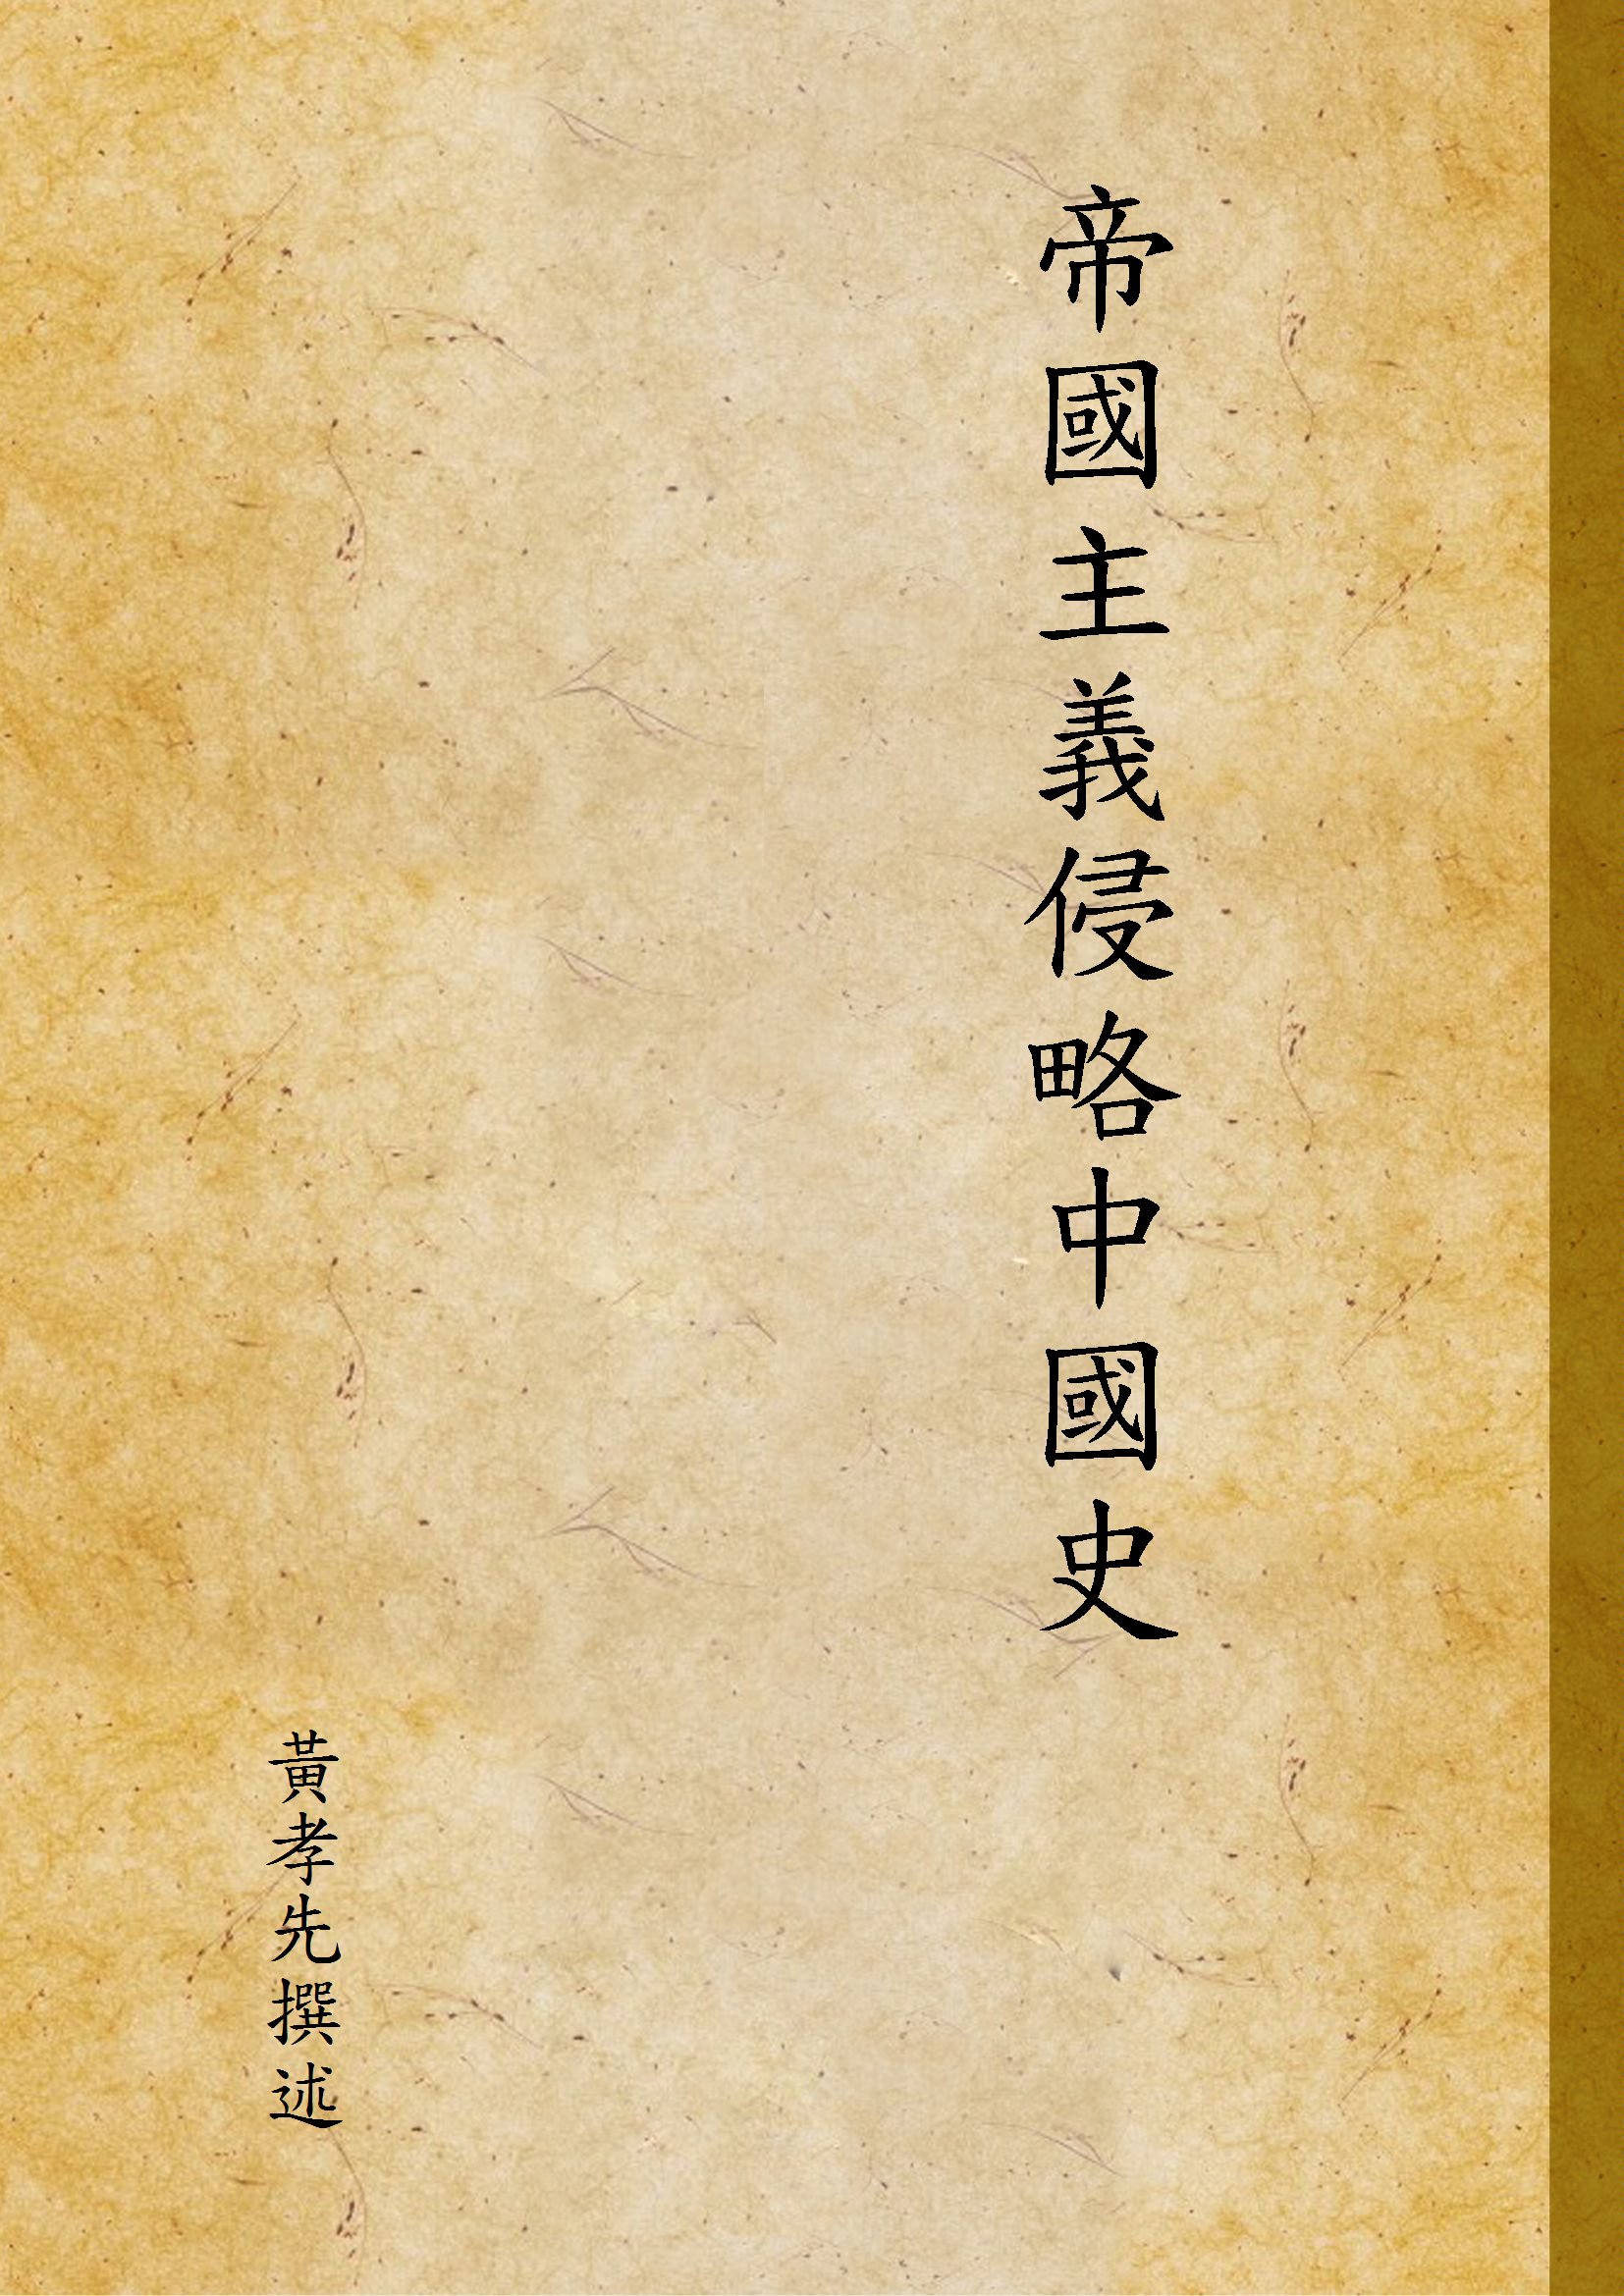 帝國主義侵略中國史
黃孝先撰述